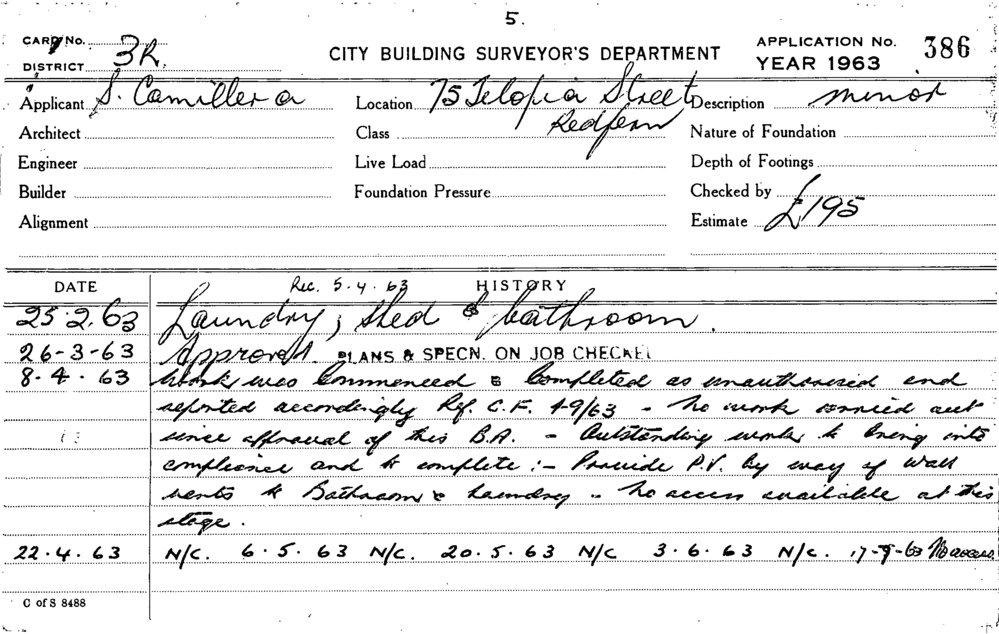 5.
CARD No.
DISTRICT 3R.
CITY BUILDING SURVEYOR'S DEPARTMENT
APPLICATION No. 386
YEAR 1963
Applicant S. Camillera
Location 75 Telopia Street
Redfern
Description minor
Architect
Class
Nature of Foundation
Engineer
Live Load
Depth of Footings
Builder
Foundation Pressure
Checked by
Alignment
Estimate £195
DATE
Rec. 5.4.63
HISTORY
25.2.63 Laundry, shed & bathroom.
26-3-63 Approved. PLANS & SPECN. ON JOB CHECKED
8.4.63 Work was Commenced & Completed as unauthorised and
reported accordingly Ref. C.F. 49/63 - No work carried out
since approval of this B.A. - Outstanding work to bring into
compliance and to complete :- Provide P.V. by way of wall
vents to Bathroom & Laundry - No access available at this
stage.
22.4.63 N/C. 6.5.63 N/C. 20.5.63 N/C 3.6.63 N/C. 63 No access.
C of S 8488